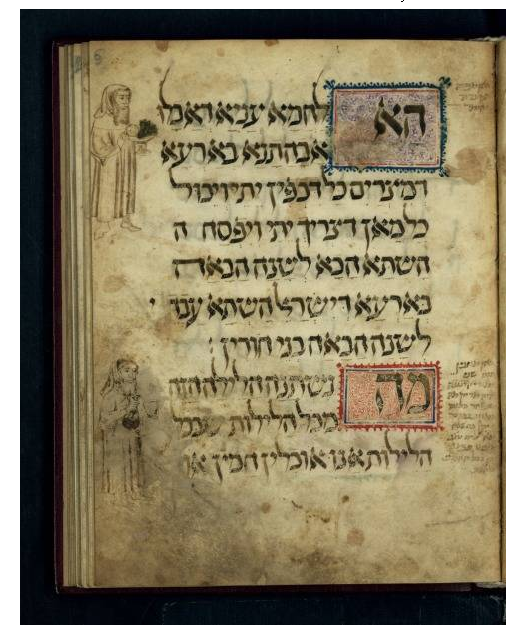 הא לחמא עניא דאכלו
אבהתנא בארעא
דמצרים כל דכפין יתי ויכול
כל מאן דצריך יתי ויפסח ה
השתא הכא לשנה הבאה
בארעא דישראל השתא עבדי
לשנה הבאה בני חורין :
מה נשתנה הלילה הזה
מכל הלילות שבכל
הלילות אנו אוכלין חמץ או